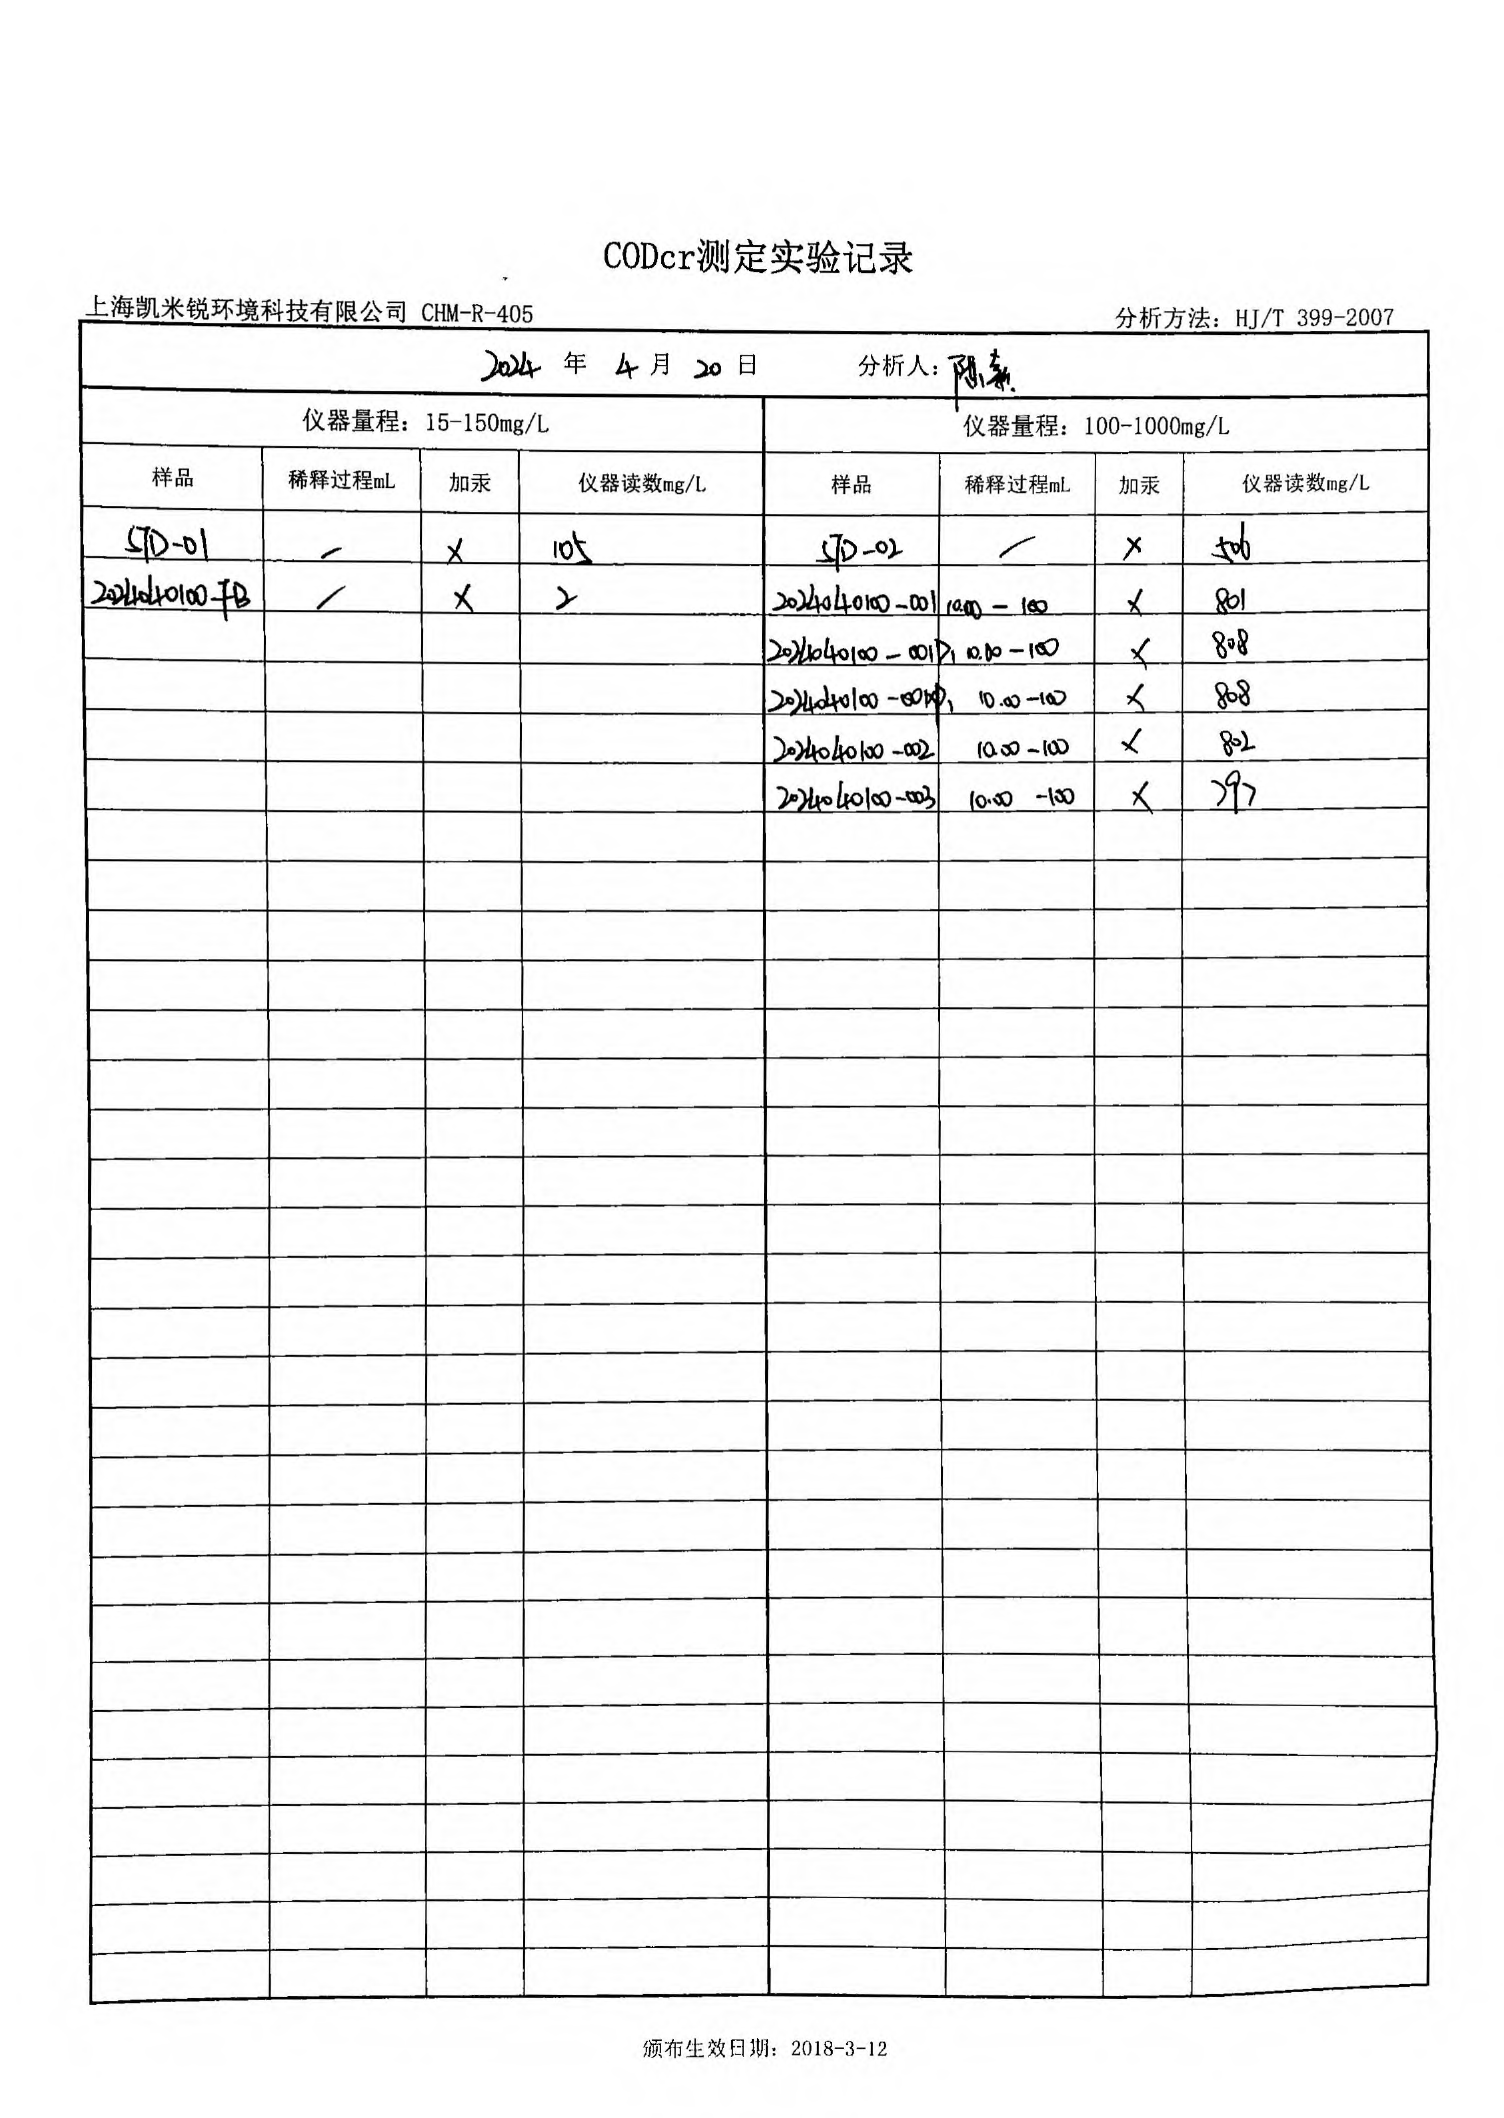 CODcr测定实验记录
上海凯米锐环境科技有限公司 CHM-R-405 分析方法：HJ/T 399-2007
2024 年 4 月 20 日 分析人：陈
仪器量程：15-150mg/L 仪器量程：100-1000mg/L
样品 稀释过程mL 加汞 仪器读数mg/L 样品 稀释过程mL 加汞 仪器读数mg/L
STD-01 / × 105 STD-02 / × 506
2024040100-FB / × 2 2024040100-001 10.00-100 × 801
2024040100-001D1 10.00-100 × 808
2024040100- 10.00-100 × 808
2024040100-002 10.00-100 × 802
2024040100-003 10.00-100 × 797
颁布生效日期：2018-3-12